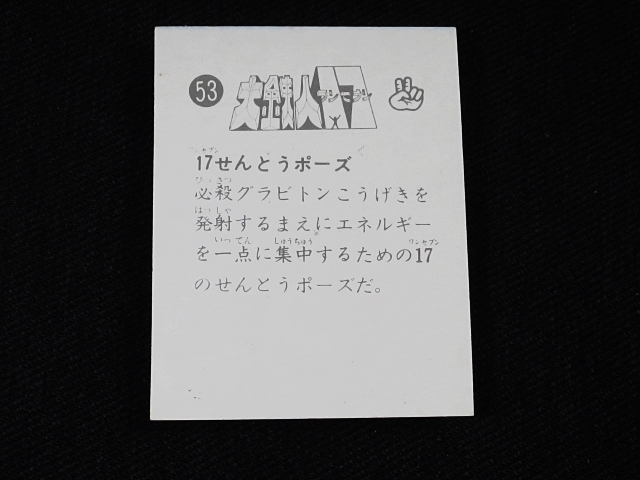 53 大鉄人17 ワンセブン
ワンセブン
17せんとうポーズ
ひっさつ
必殺グラビトンこうげきを
はっしゃ
発射するまえにエネルギー
いってん しゅうちゅう ワンセブン
を一点に集中するための17
のせんとうポーズだ。